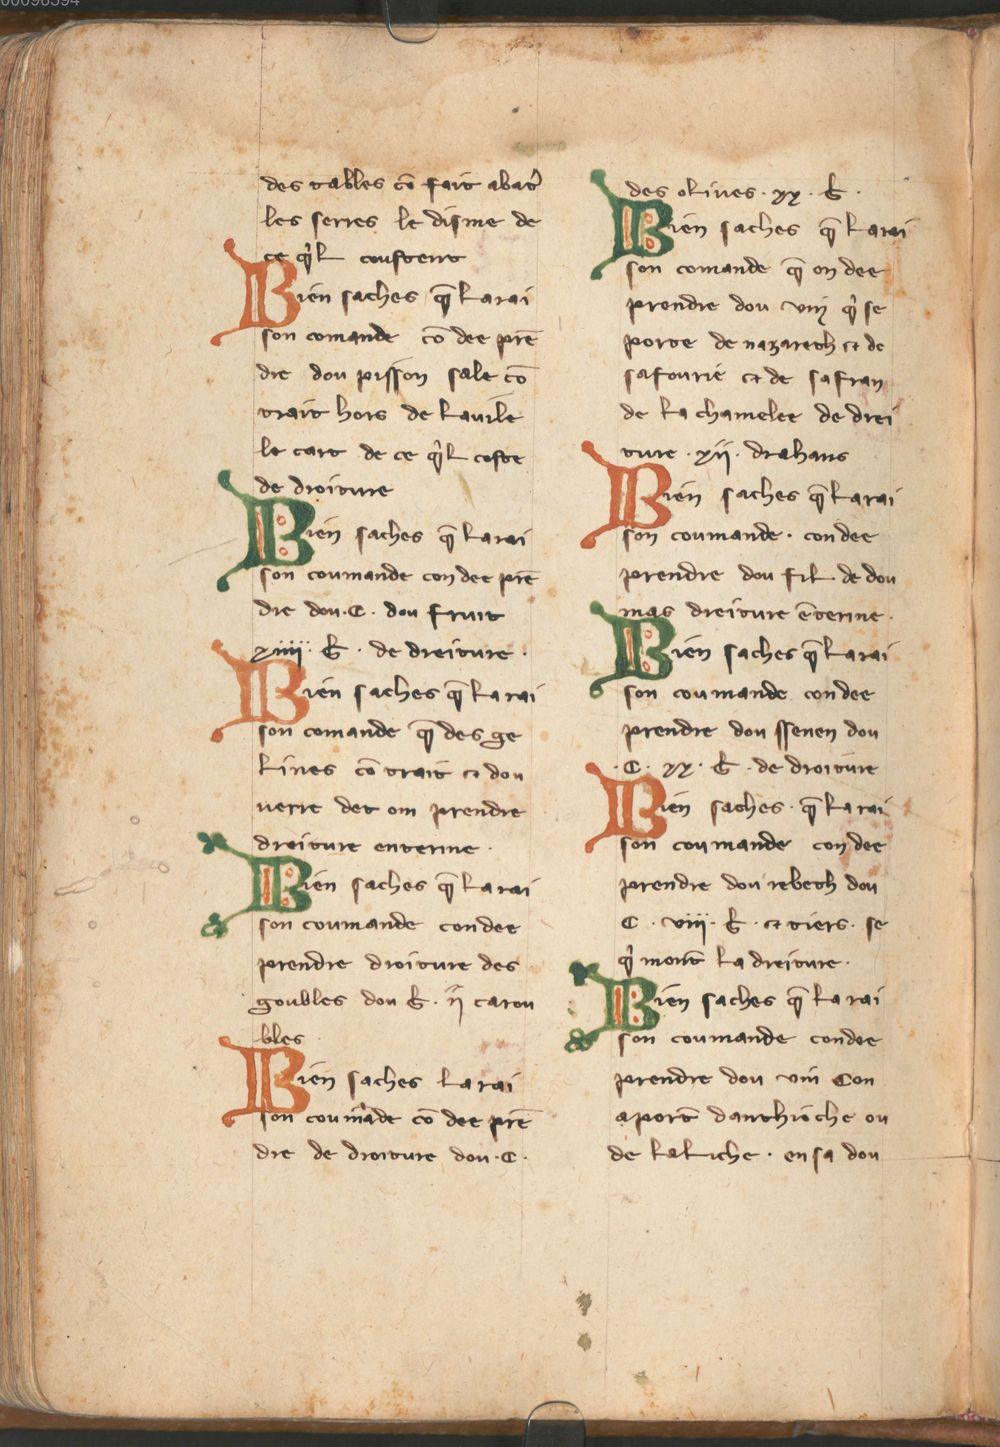 00096594
des tables cō fait abatr̄
les serres le disme de
ce q̄l coustent
Bien saches q̄ la rai
son comande cō dee prē
dre dou pisson sale cō
trait hors de la uile
le cart de ce q̄l coste
de droiture
Bien saches q̄ la rai
son coumande con dee prē
dre dou · C · dou fruit
xiiii · B · de dreiture ·
Bien saches q̄ la rai
son comande q̄ des ge
lines cō trait et dou
uerre det om prendre
dreiture enterine ·
Bien saches q̄ la rai
son coumande con dee
prendre droiture des
goubles dou B · ii carou
bles
Bien saches la rai
son coumāde cō dee prē
dre de droiture dou · C ·
des oliues · xx · B ·
Bien saches q̄ la rai
son comande q̄ on dee
prendre dou vin q̄ se
porte de nazareth et de
safourie et de safran
de la chamelee de drei
ture · xii · drahans
Bien saches q̄ la rai
son coumande · con dee
prendre dou fil de dou
mas dreiture ēterine ·
Bien saches q̄ la rai
son coumande con dee
prendre dou ssenen dou
· C · xx · B · de droiture
Bien saches · q̄ la rai
son coumande con dee
prendre dou rebeth dou
C · viii · B · et tiers · se
q̄ mont la dreiture ·
Bien saches q̄ la rai
son coumande con dee
prendre dou vin Con
aport danthioche ou
de la liche · en sa dou